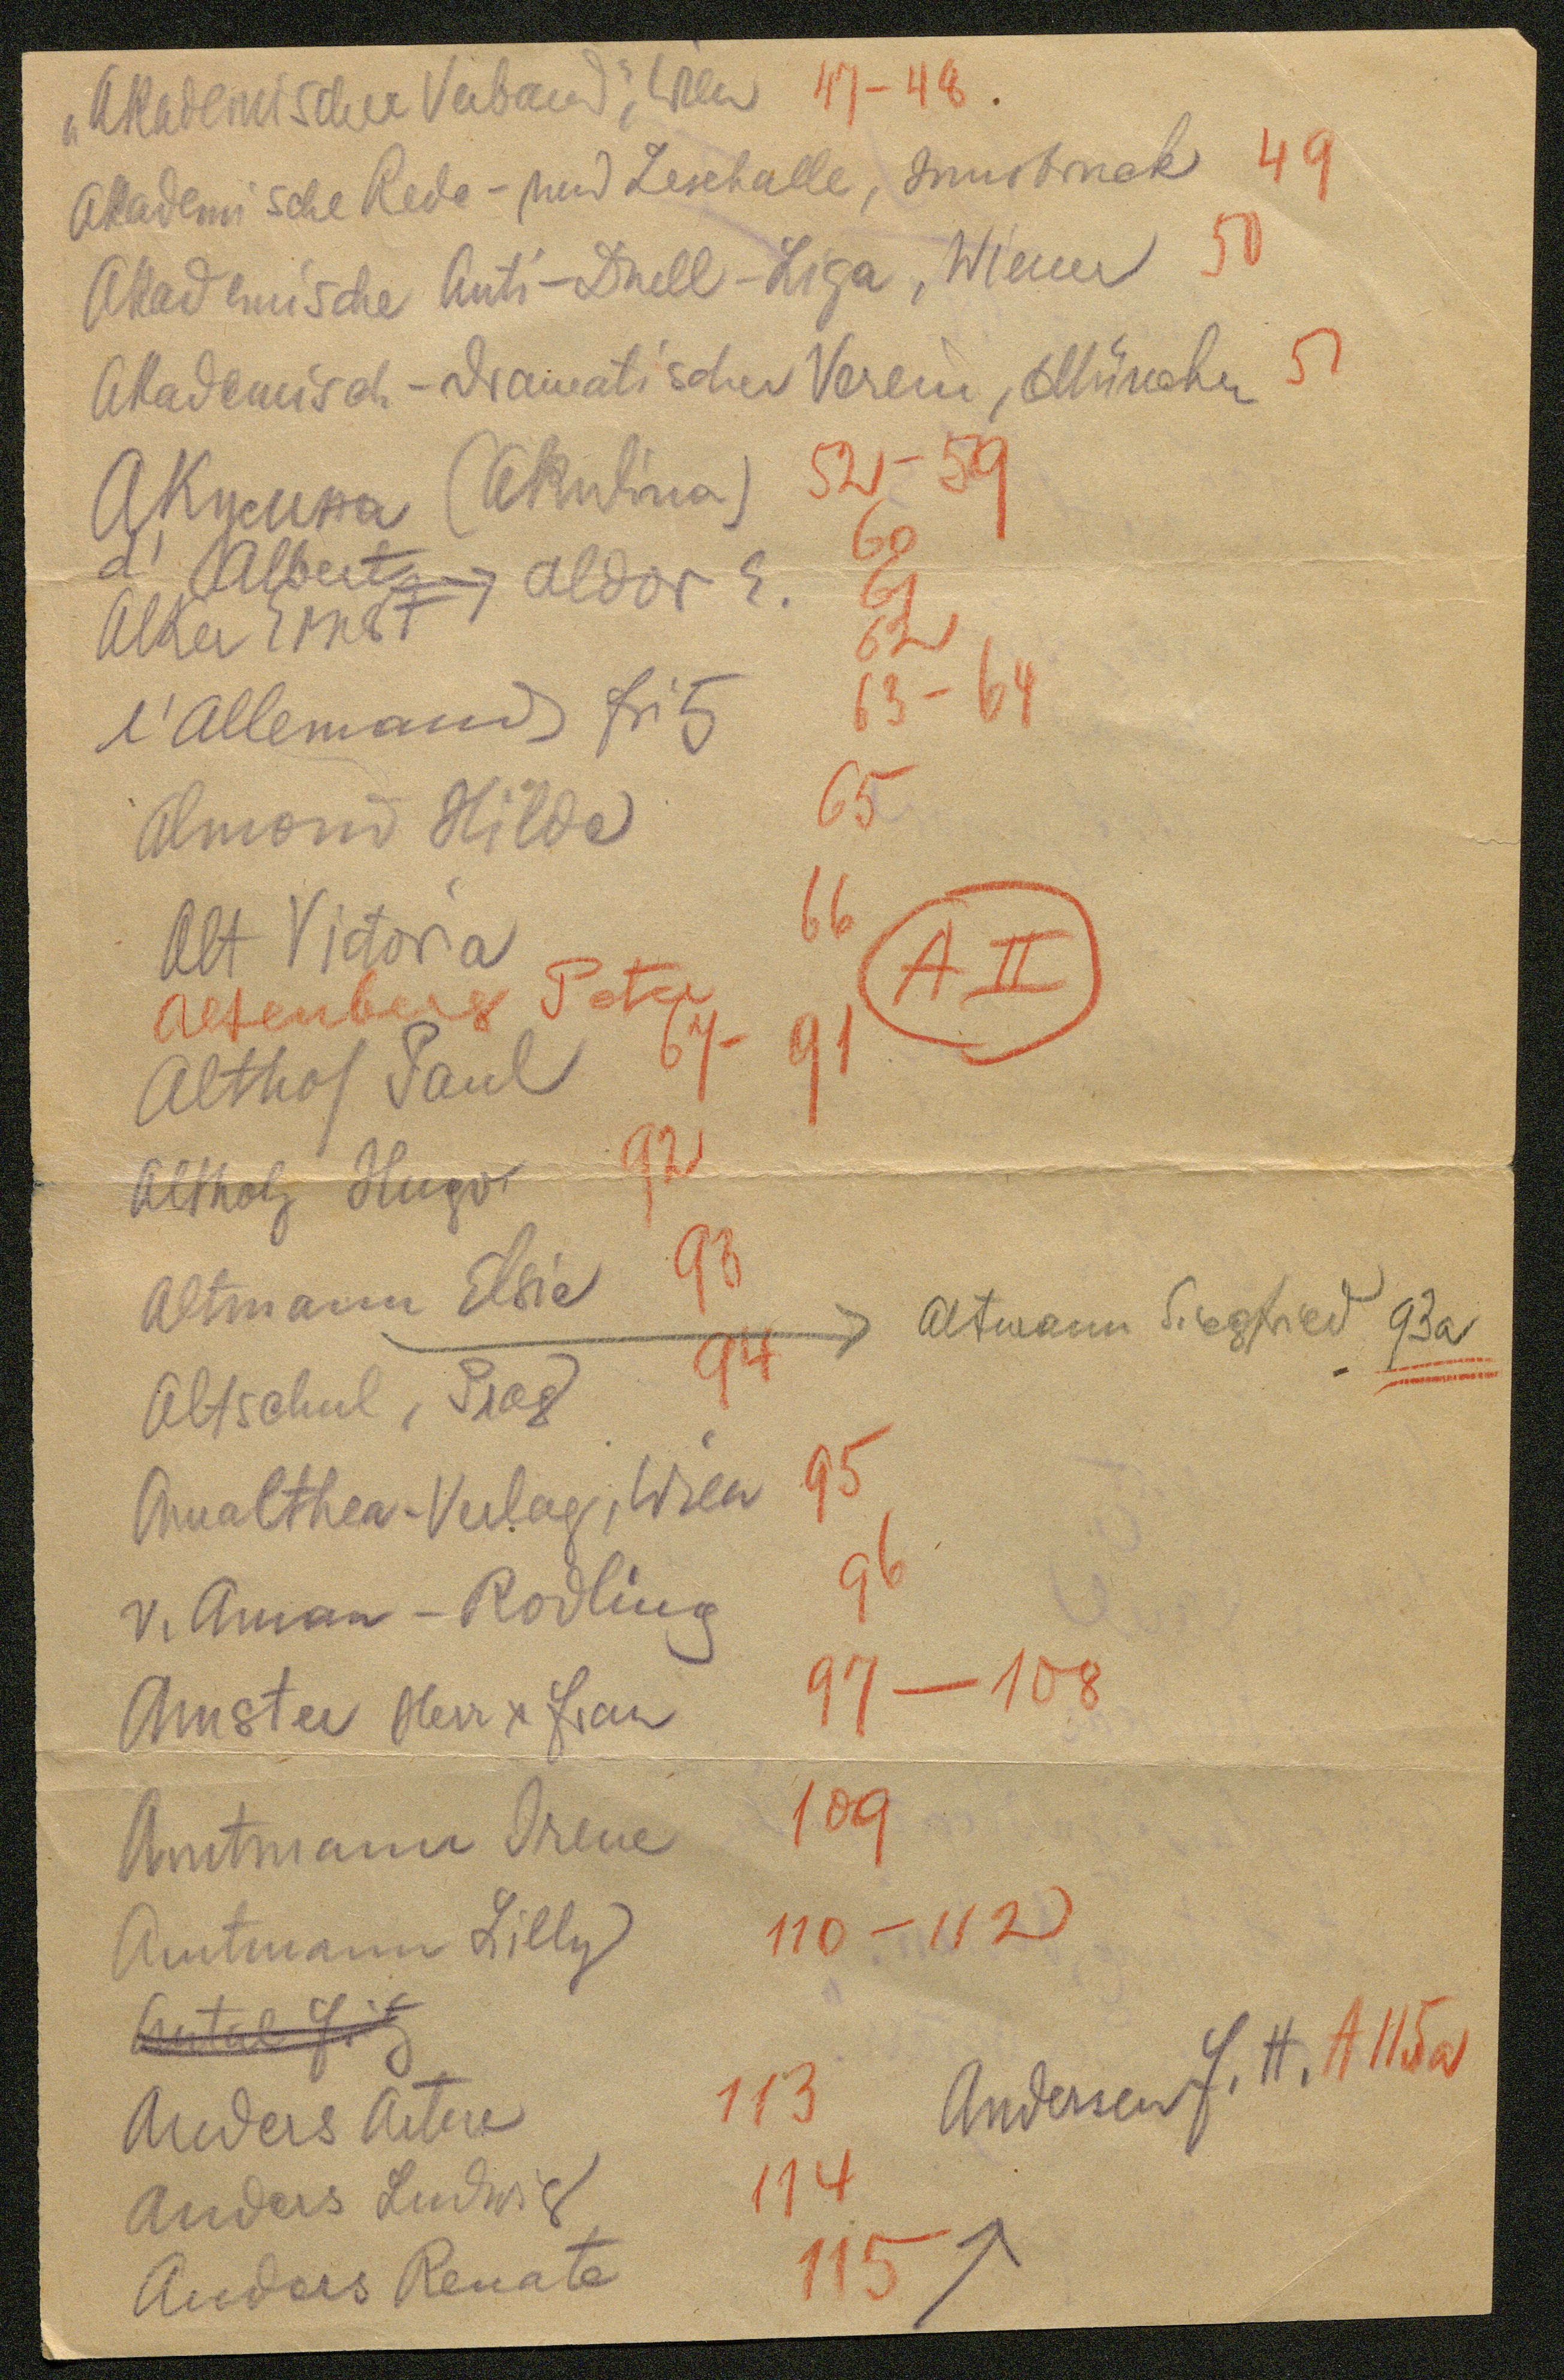 „Akademischer Verband", Wien 47-48.
Akademische Rede- und Lesehalle, Innsbruck 49
Akademische Anti-Duell-Liga, Wiener 50
Akademisch-dramatischer Verein, München 51
Акулина (Akulina) 52-59
d'Albert → Aldor E. 60 61
Alker Ernst 62
l'Allemand Fritz 63-64
Almond Hilda 65
Alt Victoria 66
Altenberg Peter A II
Althof Paul 67-91
Altholz Hugo 92
Altmann Elsie 93 → Altmann Siegfried 93a
Altschul, Prag 94
Amalthea-Verlag, Wien 95
v. Aman-Rodling 96
Amster Herr & Frau 97-108
Amtmann Irene 109
Amtmann Lilly 110-112
Antal Fritz
Anders Artur 113 Andersen J. H. A 115a
Anders Ludwig 114
Anders Renate 115